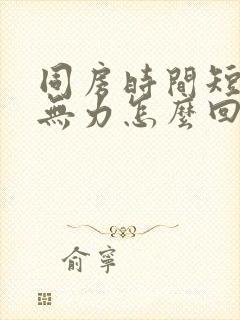 同房時間短
無力怎麼回
俞寧